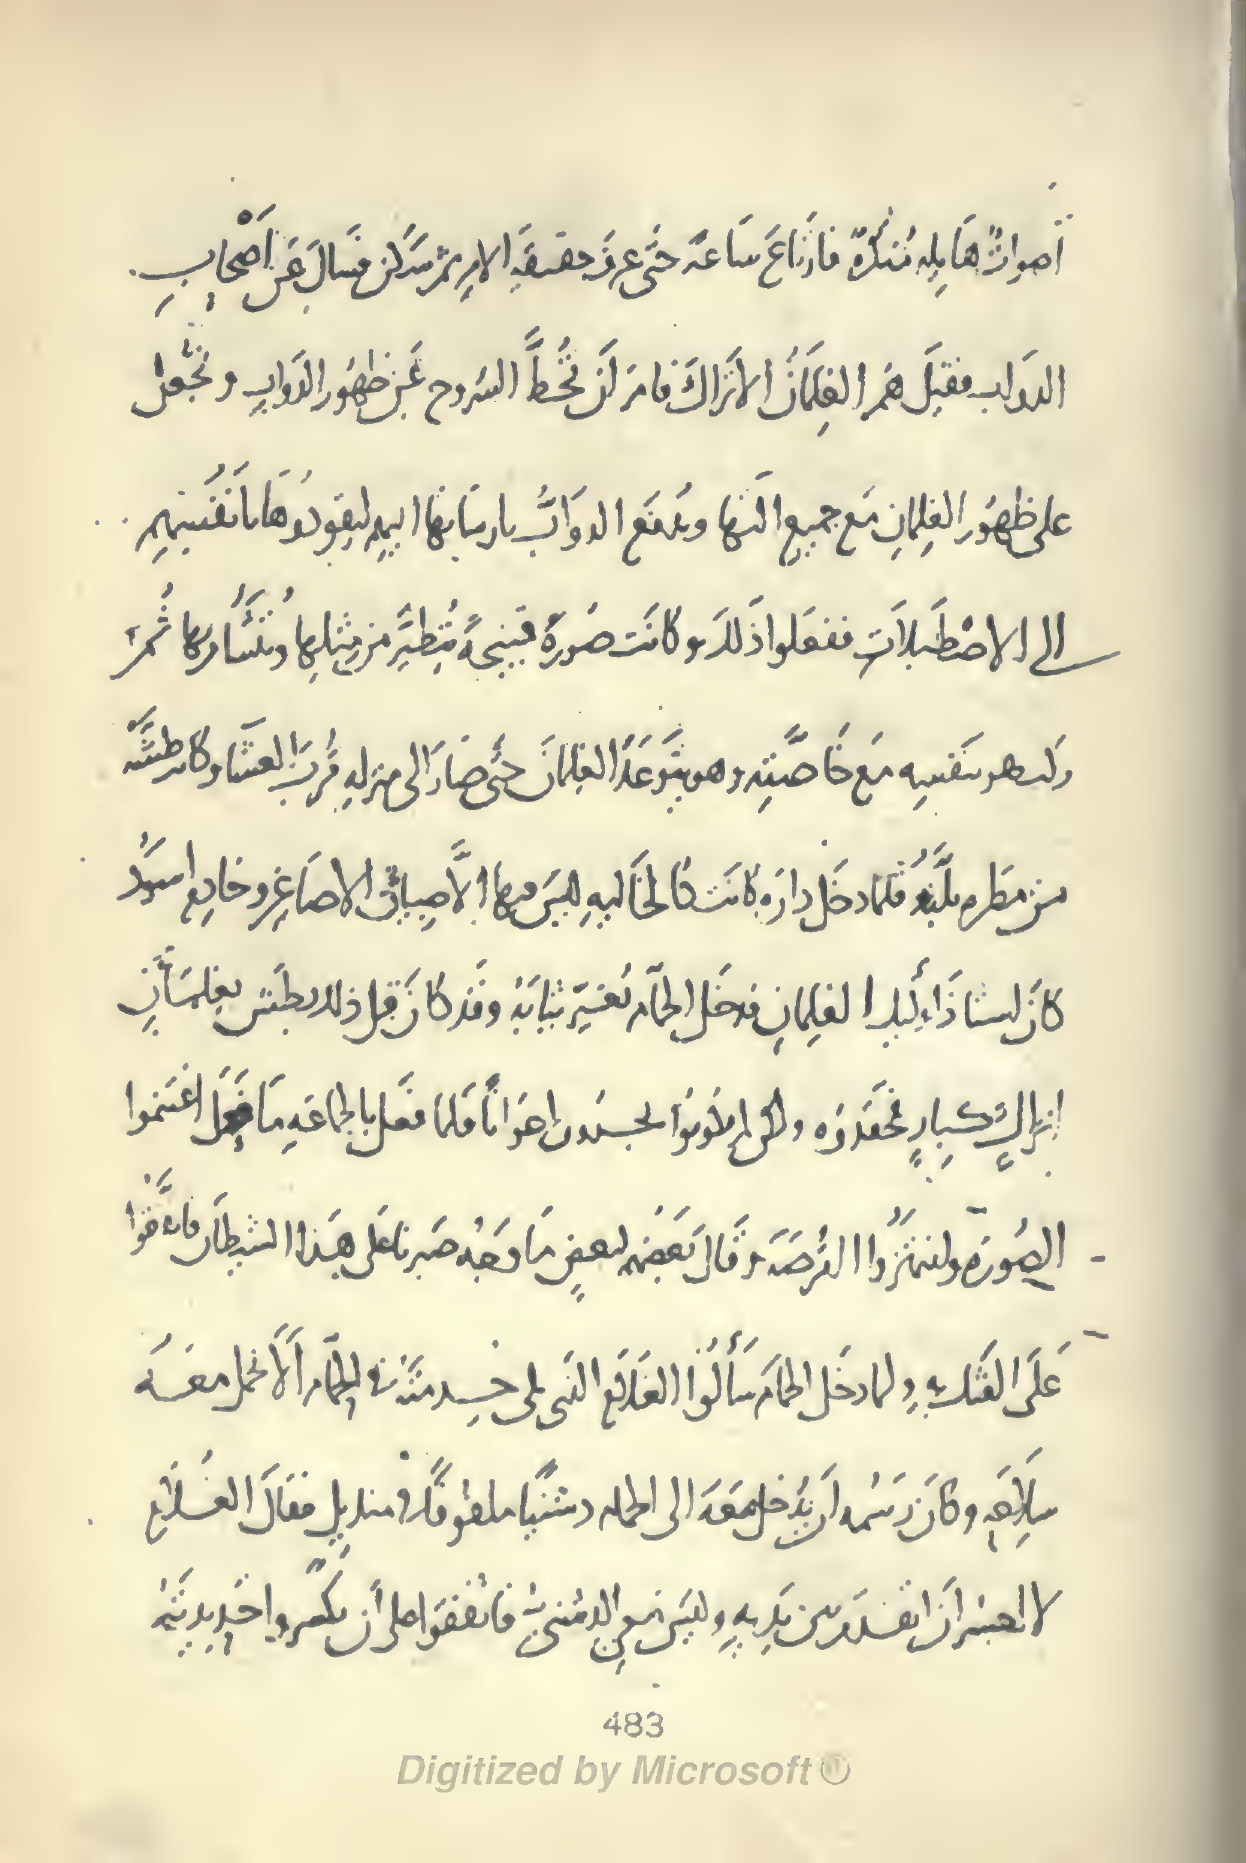 أصواتٌ هَايِله مُنكَرَةٌ فارتَاعَ سَاعَةً حتَّى عرفَ حقيقَة الامر ثم سَكن فسَالَ عَن أَصْحَابِ
الدَواب فقيلَ هُم الغِلمَانُ الاترَاكَ فامر اَن تُحُطَّ السُروج عَن ظهُور الدَوابِ وتُجْعل
على ظهُورِ الغِلمانِ مَع جميع التها ويُدفَع الدوَابُّ بارسَانها اليهم ليقودُوهَا بانفُسِهم
الى الاصْطَبلاَتِ ففعَلوا ذَلكَ وكانَت صُورةً قبيحَةً يُتطيَّرُ من مِثلها ويُتشَأَّمُ بها ثُم
ركب هو بنَفسِه مَع خَاصَّتِه وهو يتَوعَدُ الغلمانَ حتَّى صَارَ الى منزلِهِ قُربَ العشَا وكان قد
من مطره فلمّا دخَل دارَه كانَت كالخَاليهِ ليسَ فيها الاَّ صِبيانٌ الاصَاغِر وخادِم اسوَد
كانَ استاذَاً لِهُولا الغلمانِ فدخَل الحمَّام لُغيّرَ ثيابَهُ وقَد كانَ قبل ذلك بطَش بغِلمَانٍ
اترَاكٍ كبارٍ فحقَدُوه ولكن لم يكونوا يجدون اعوَاناً فلما فعَل بالجماعَهِ مَا فَعَل اغتنموا
الصُورَهَ وانتهَزُوا الفُرصَة وقَالَ بَعضُهم لبعضٍ مَا وَجهُ صَبرنا على هَذا الشيطانِ فاتَّفَقُوا
عَلَى الفَتك بِهِ ولما دخَل الحمَام سَأَلُوا الغلامَ الذي يلى خدمتَهُ في الحمَّام أَلاَّ يحمل معَه
سِلاَحَهِ وكانَ رَسمُه اَن يُدخل معَهَ الى الحمام دشنيًّا ملفوفًا في منديلٍ فقالَ الغلام
لا اجسُر اَن اتقدَّم بين يَدِيهِ وليسَ معِي الدشنى فاتفقوا على أَن يكسّروا حَديدتَهُ
483
Digitized by Microsoft®